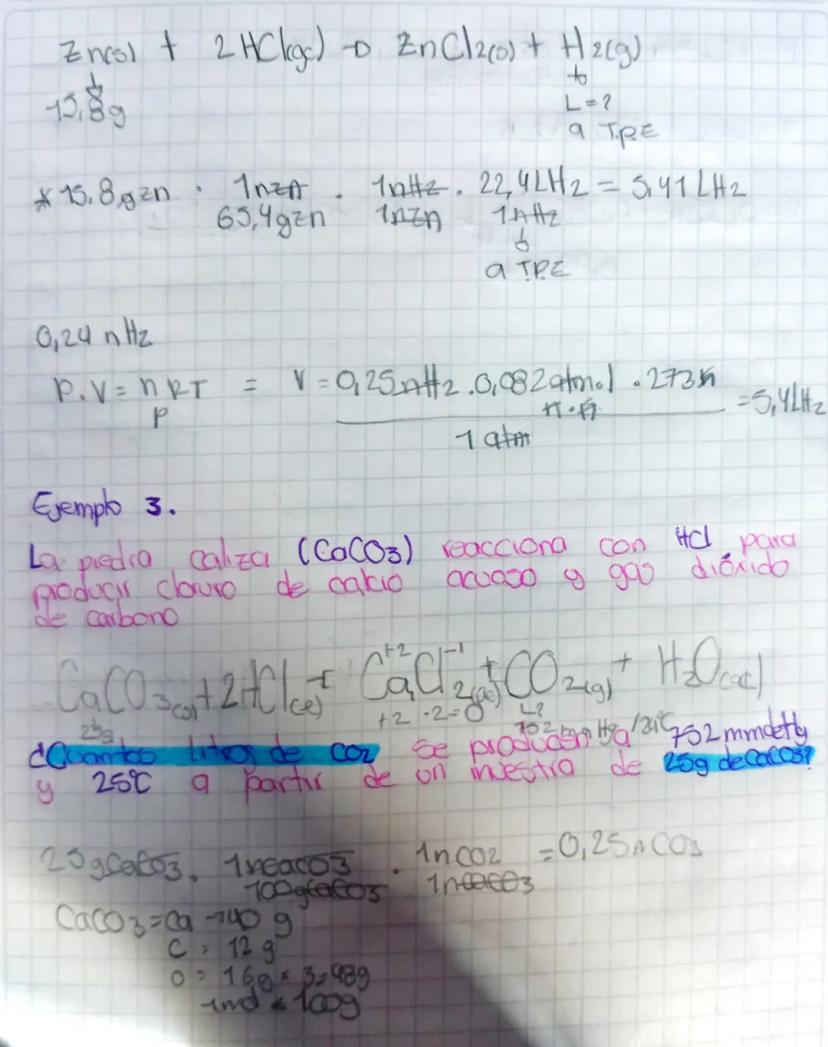 Zn(s) + 2HCl(ac) → ZnCl2(s) + H2(g)
↓ ↓
15,8g L=?
a T.P.E
* 15.8 g zn · 1nzn · 1nH2 · 22,4LH2 = 5,41 LH2
65,4gzn 1nZn 1nH2
↓
a T.P.E
0,24 nH2
P.V = nRT = V = 0,25nH2 . 0,082atm.l · 273K = 5,4LH2
P 1 atm
Ejemplo 3.
La piedra caliza (CaCO3) reacciona con HCl para
producir cloruro de calcio acuoso y gas dióxido
de carbono
+2 -1
CaCO3(s) + 2HCl(ac) → CaCl2(ac) + CO2(g) + H2O(ac)
25g +2 -2=0 L?
¿Cuantos litros de CO2 se producen a 752 mmdeHg
y 25°C a partir de un muestra de 25g de CaCO3?
25gCaCO3 . 1nCaCO3 . 1nCO2 = 0,25nCO3
100gCaCO3 1nCaCO3
CaCO3 = Ca → 40 g
C = 12 g
O = 16g × 3=48g
1mol = 100g